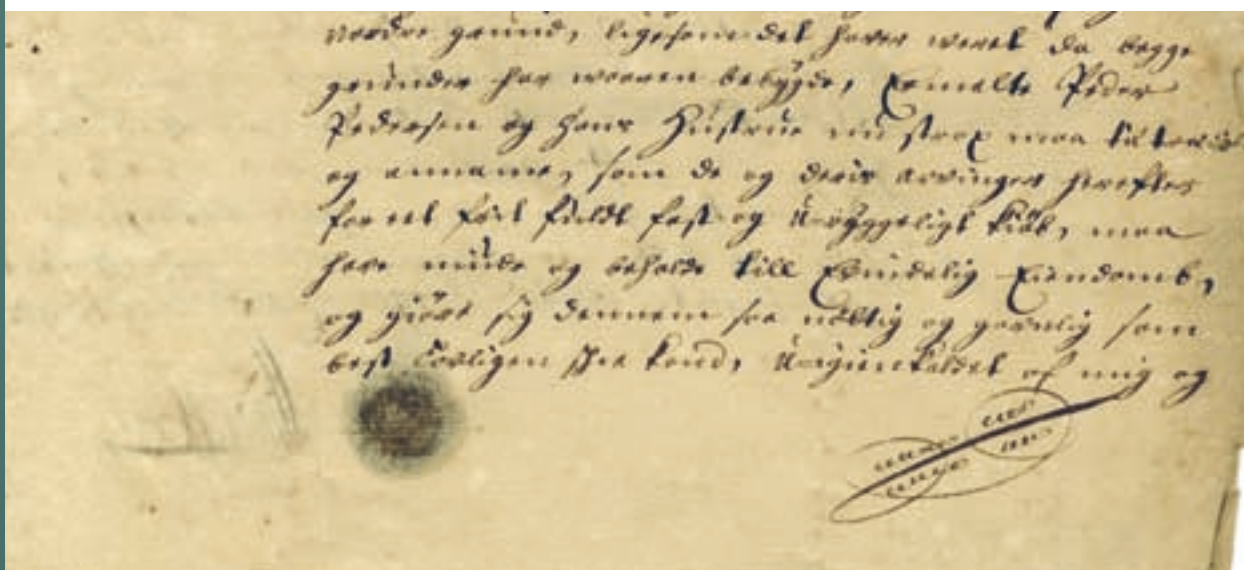 nordre grund, ligesom det hafver weret da begge
grunder har worren bebygde, Ermelte Peder
Pedersen og hans Hustrue nu strax maa tiltræde
og annamme, som de og deris arvinger herefter
for et frit fuldt fast og Uryggeligt Kiøb, maa
have niude og beholde till Ævindelig Eiendomb,
og giøre sig dennem saa nøttig og gavnlig som
best lovligen skee kand, Uigienkaldet af mig og